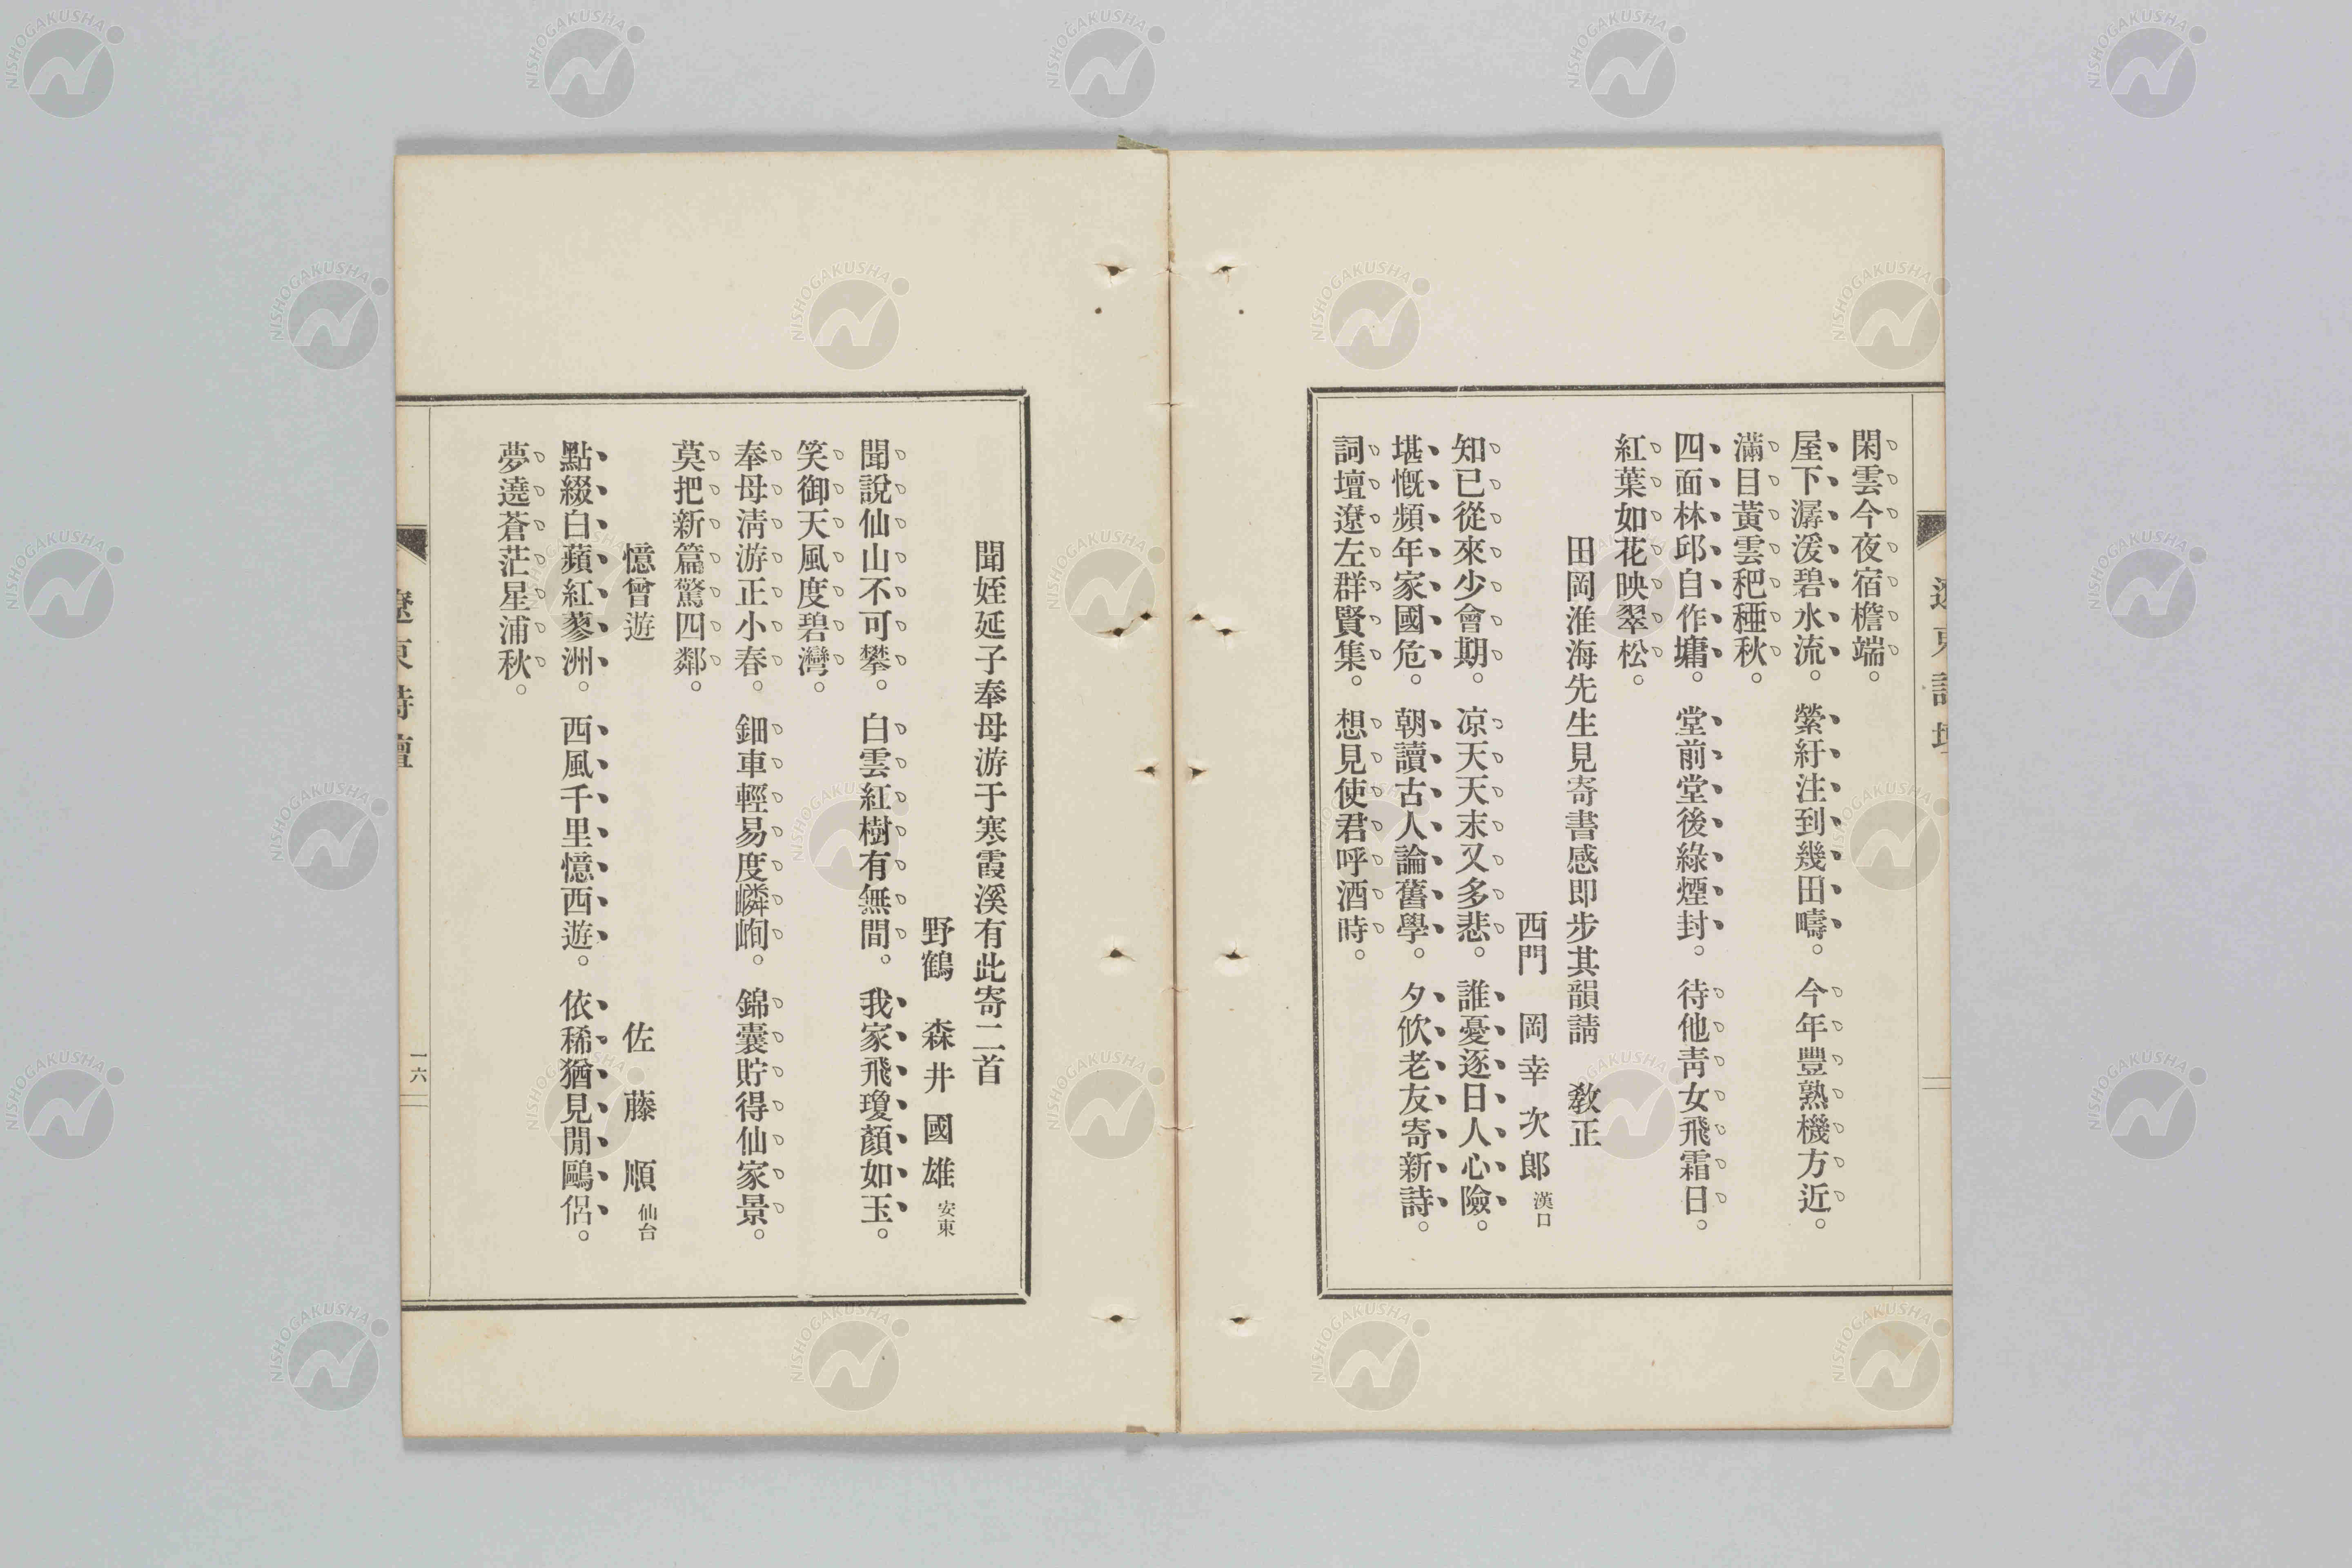 閑雲今夜宿檐端。
屋下潺湲碧水流。縈紆注到幾田疇。今年豐熟機方近。
滿目黃雲䆉稏秋。
四面林邱自作墉。堂前堂後綠煙封。待他靑女飛霜日。
紅葉如花映翠松。
田岡淮海先生見寄書感卽步其韻請 敎正
西門 岡幸次郎 漢口
知已從來少會期。凉天天末又多悲。誰憂逐日人心險。
堪慨頻年家國危。朝讀古人論舊學。夕欣老友寄新詩。
詞壇遼左群賢集。想見使君呼酒時。
聞姪延子奉母游于寒霞溪有此寄二首
野鶴 森井國雄 安東
聞說仙山不可攀。白雲紅樹有無間。我家飛瓊顏如玉。
笑御天風度碧灣。
奉母淸游正小春。鈿車輕易度嶙峋。錦囊貯得仙家景。
莫把新篇驚四鄰。
憶曾遊
佐藤順 仙台
點綴白蘋紅蓼洲。西風千里憶西遊。依稀猶見閒鷗侶。
夢遶蒼茫星浦秋。
遼東詩壇
一六
NISHOGAKUSHA